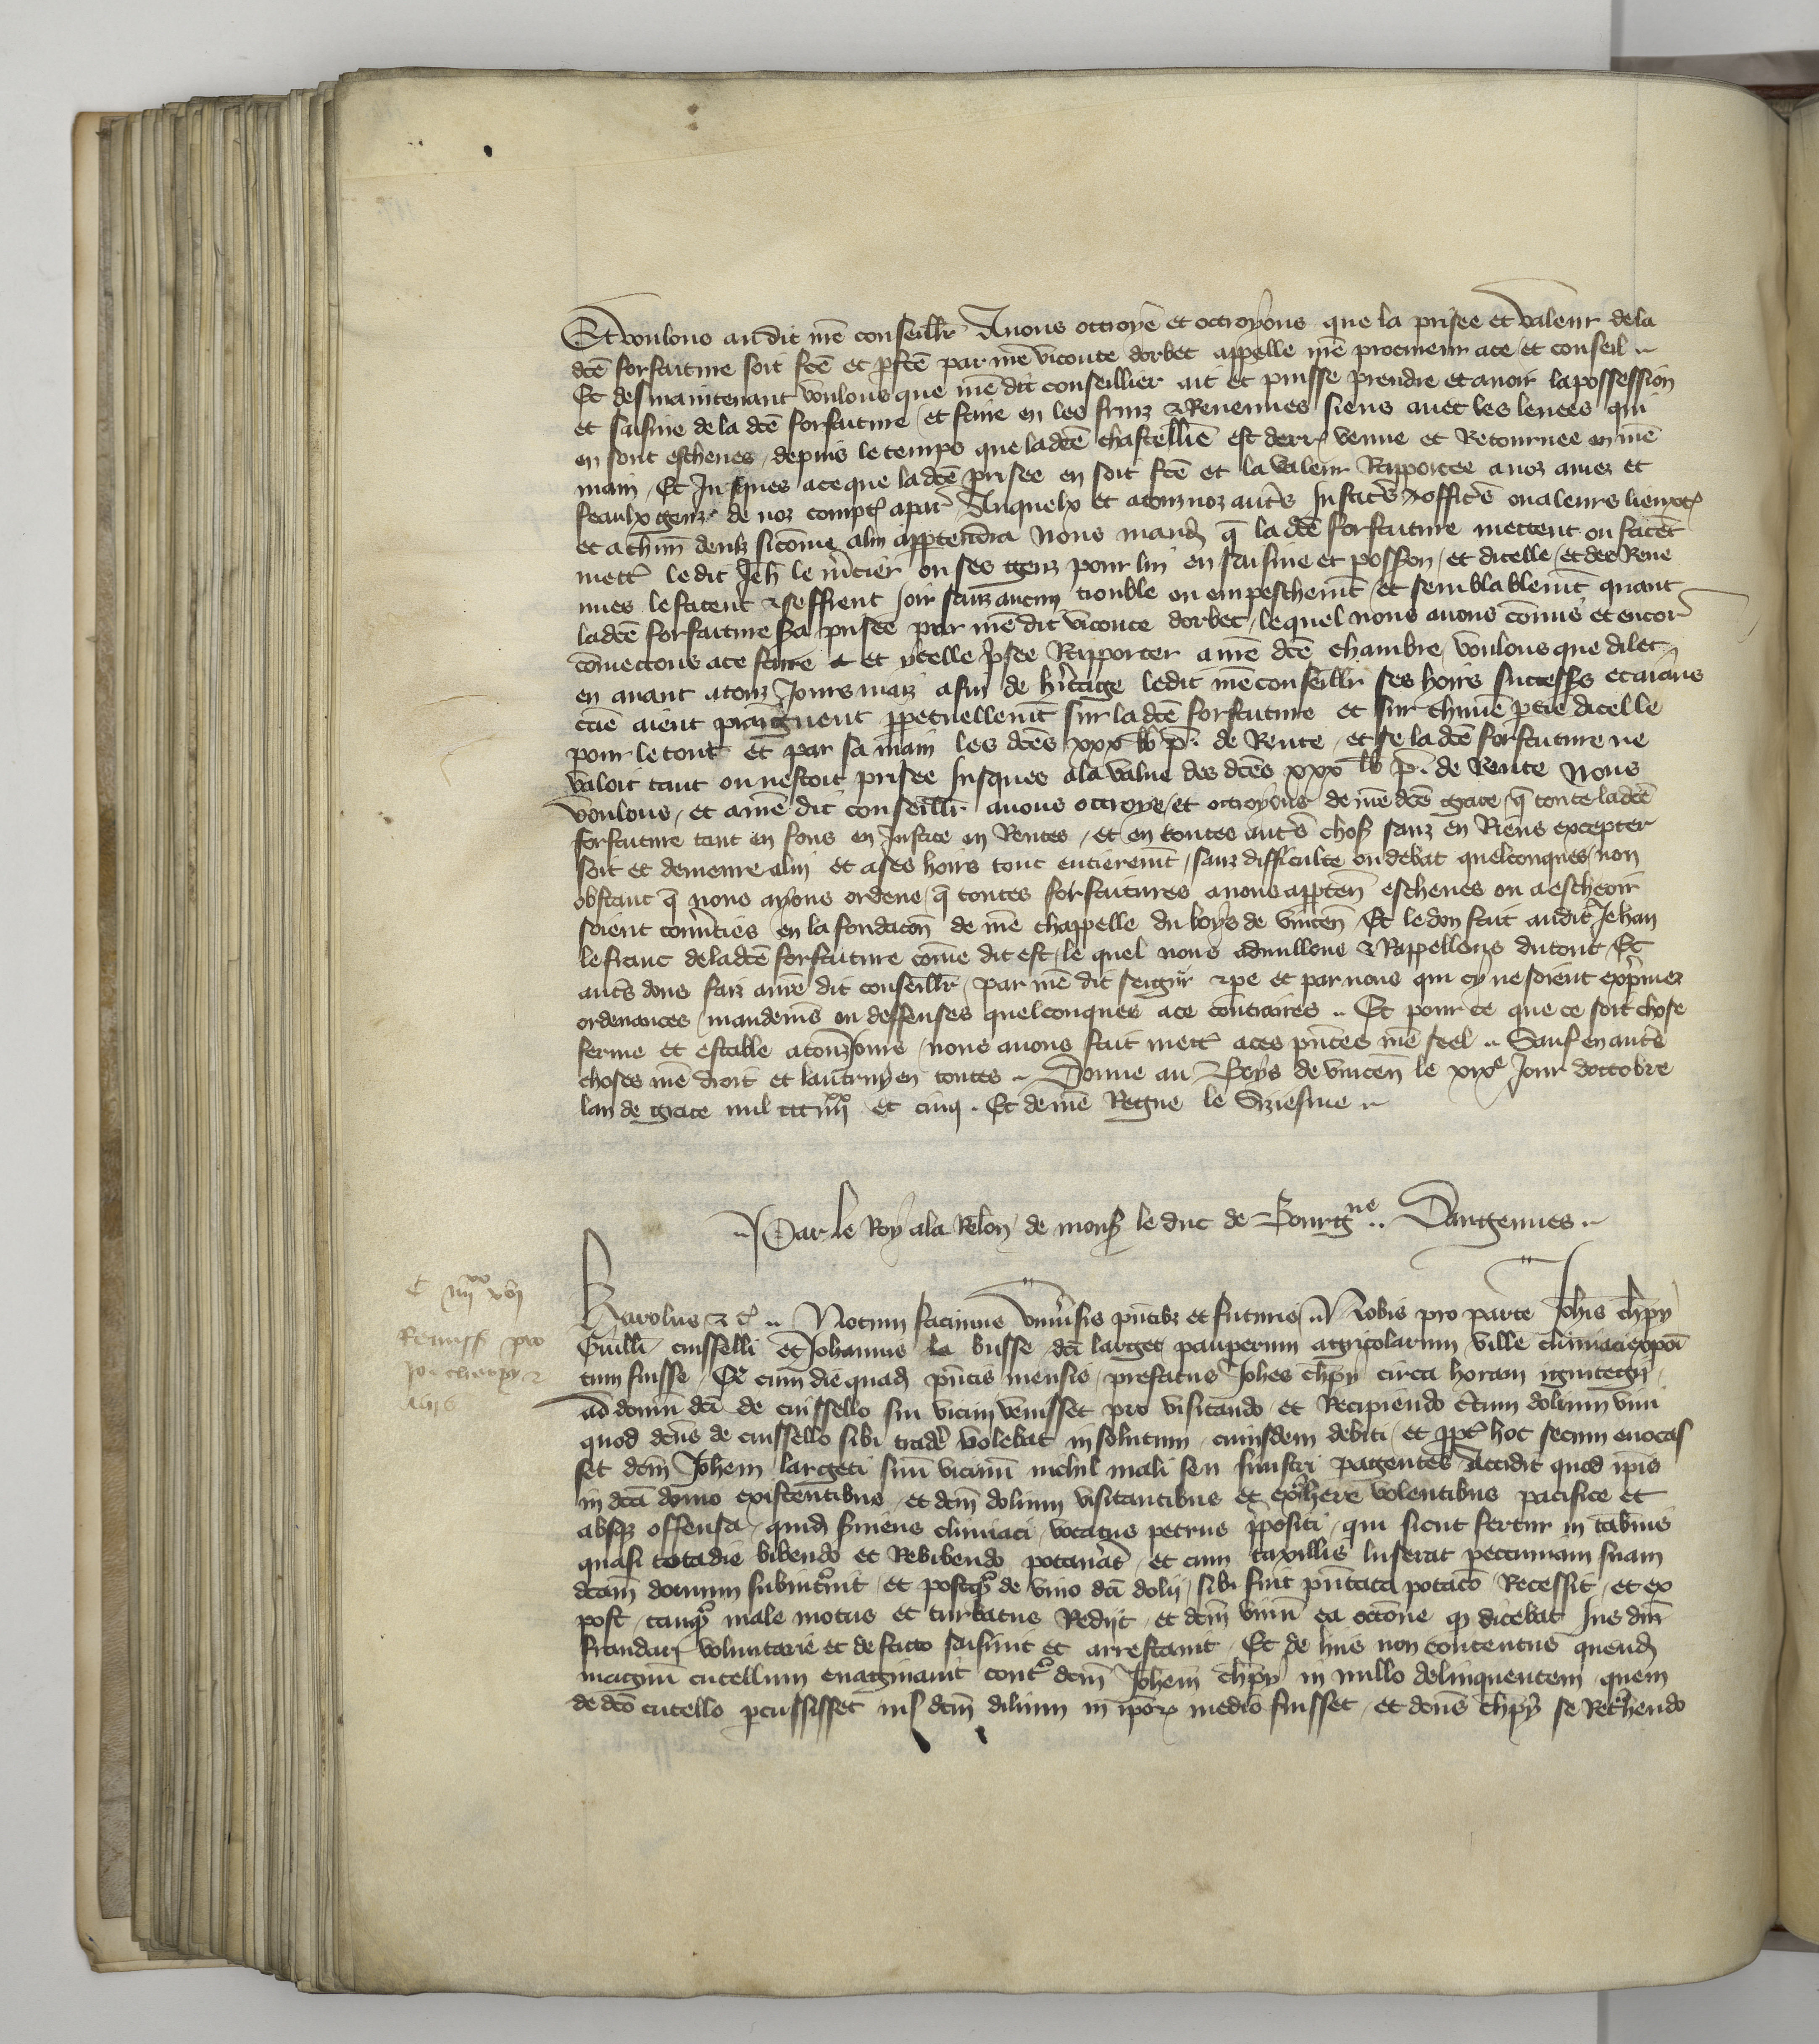 Et voulons audit nre conseillr Avons octroye et octroyons que la prisee et valeur dela
dce forfaiture soit fce et pfce par nre viconte dorbec appelle nre procureur ace et conseil
Et desmaintenant voulons que nre dit conseillier ait et puisse prendre et avoir lapossession
et saisine dela dce forfaiture et faire en les fruiz & Revenues siens avec les levees qui
en sont escheues depuis le temps que ladce chastellie est derr venue et Retournee en nre
main Et Jusques aceque ladce prisee en soit fce et la valeur Rapportee a noz amez et
feaulx genz de noz comptes apar Auquelx et atouz noz autres Justic & offic oualeurs lieux
et achun deulz sicome alui apptendra Nous mand que la dce forfaiture mettent ou facent
mettre ledit Jeh le mcier ou ses genz pour lui en saisine et posson et dicelle et des Reve
nues lefacent & seffrent joir sanz aucun trouble ou empeschemt et semblablemt quant
ladce forfaiture sa prisee par nre dit viconte dorbec lequel nous avons comis et encor
comettons ace faire et ycelle prisee Rapporter a nre dce chambre voulons que dilec
en avant atouz Jours maiz afin de hitage ledit nre conseillr ses hoirs success et aians
cause aient praignent ppetuellemt sur ladce forfaiture et sur chune ptie dicelle
pour le tout et par sa main les dces xxx lb p. de Rente et se ladce forfaiture ne
valoit tant ou nestoit prisee Jusques ala value des dces xxx lb p. de Rente Nous
voulons et a nre dit conseillr avons octroye et octroyons de nre dce grace que toute ladce
forfaiture tant en fons en Justice en Rentes et en toutes autres chos sanz en Riens excepter
soit et demeure alui et ases hoirs tout entieremt sanz difficulte ou debat quelconques non
obstant que nous ayons ordene que toutes forfaitures anous apptens escheues ou a escheoir
soient converties en la fondacon de nre chappelle du boys de vincen Et le don fait audit Jehan
lefranc deladce forfaiture come dit est le quel nous adnullons & Rappellons dutout Et
autres dons faiz a nre dit conseillr par nre dit seignr & pe et par nous qui cy ne soient exprimez
ordenances mandemens ou deffenses quelconques ace contraires Et pour ce que ce soit chose
ferme et estable atouzjours nous avons fait mettre aces presentes nre seel Sauf en autres
choses nre droit et lautruy en toutes Donne au Boys de vincen le xixe Jour doctobre
lan de grace mil ccc iiiixx et cinq . Et de nre Regne le Siziesme
Par le Roy ala Relon de mons le duc de Bourgne Dangennes
C iiiixx xvi
Remiss pro
Jo. cherpy &
aliis
Karolus & c Notum facimus Universis pntibz et futuris Nobis pro parte Johis chpy
Guilli cuisselli et Johannis la busse dci larget pauperum agricolarum ville cluniaci exposi
tum fuisse Qr cum die quad pntis mensis prefatus Johes chpy circa horam ignitegii
ad domu dci de cuissello sui vicini venisset pro visitando et Recipiendo ctum dolium vini
quod dcus de cuissello sibi tradere volebat insolutum cuiusdem debiti et ppt hoc secum evocas
set dcm Johem largeti suu vicinu nichil mali seu sinistri pagentes Accidit quod ipis
in dca domo existentibus et dcm dolium visitantibus et exthere volentibus pacifice et
absqz offensa quid sviens cluniaci vocatus petrus ppositi qui sicut fertur in tabnis
quasi totadie bibendo et Rebibendo potavat et cum taxillis luserat peccuniam suam
dcam domum subintvit et postq de vino dci dolii sibi fuit pntata potaco Recessit et ex
post tanq male motus et turbatus Rediit et dcm vinu ea occone q dicebat Jus dni
fraudari voluntarie et de facto saisivit et arrestavit Et de hiis non contentus quend
magnu cutellum evaginavit contra dcm Johem chpy in nullo delinquentem quem
de dco cutello pcussisset nisi dcm dilium in ipor medio fuisset et dcus chpy se Rethendo